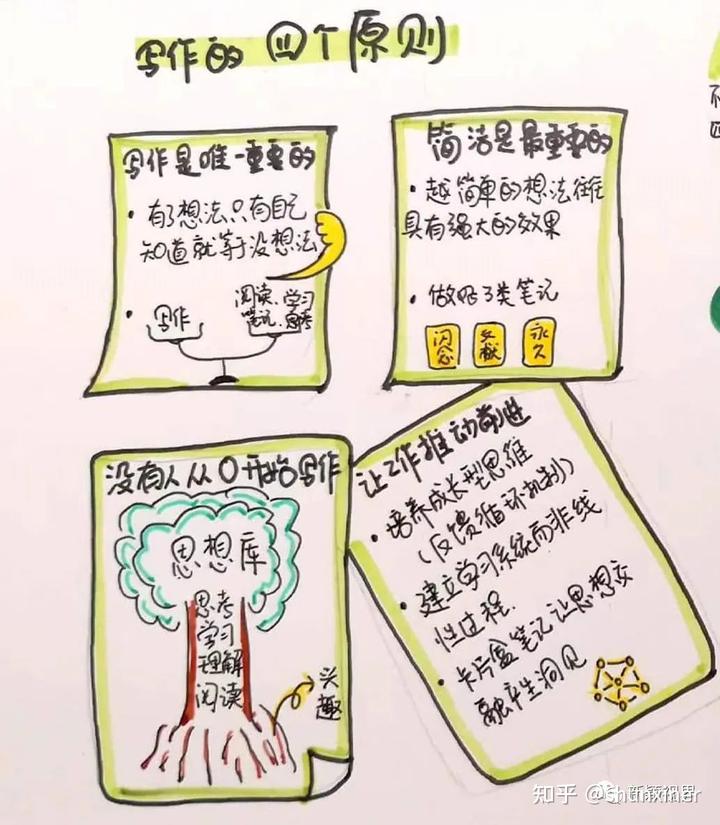 写作的 四个原则
写作是唯一重要的
• 有了想法只有自己
知道就等于没想法
•
写作
阅读、学习
笔记、思考
简洁是最重要的
• 越简单的想法往往
具有强大的效果
• 做好3类笔记
闪念
文献
永久
没有人从0开始写作
思想库
思考
学习
理解
阅读
兴趣
让工作推动前进
• 培养成长型思维
(反馈循环机制)
• 建立学习系统而非线
性过程.
• 卡片盒笔记让思想交
融产生洞见
不
四
知乎 @shunxiner